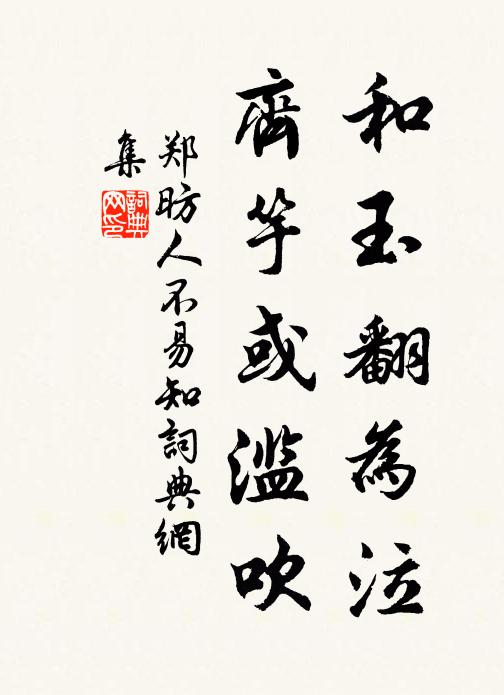 和玉翻為泣
齊竽或濫吹
郑昉人不易知詞典網
集
詞典网印